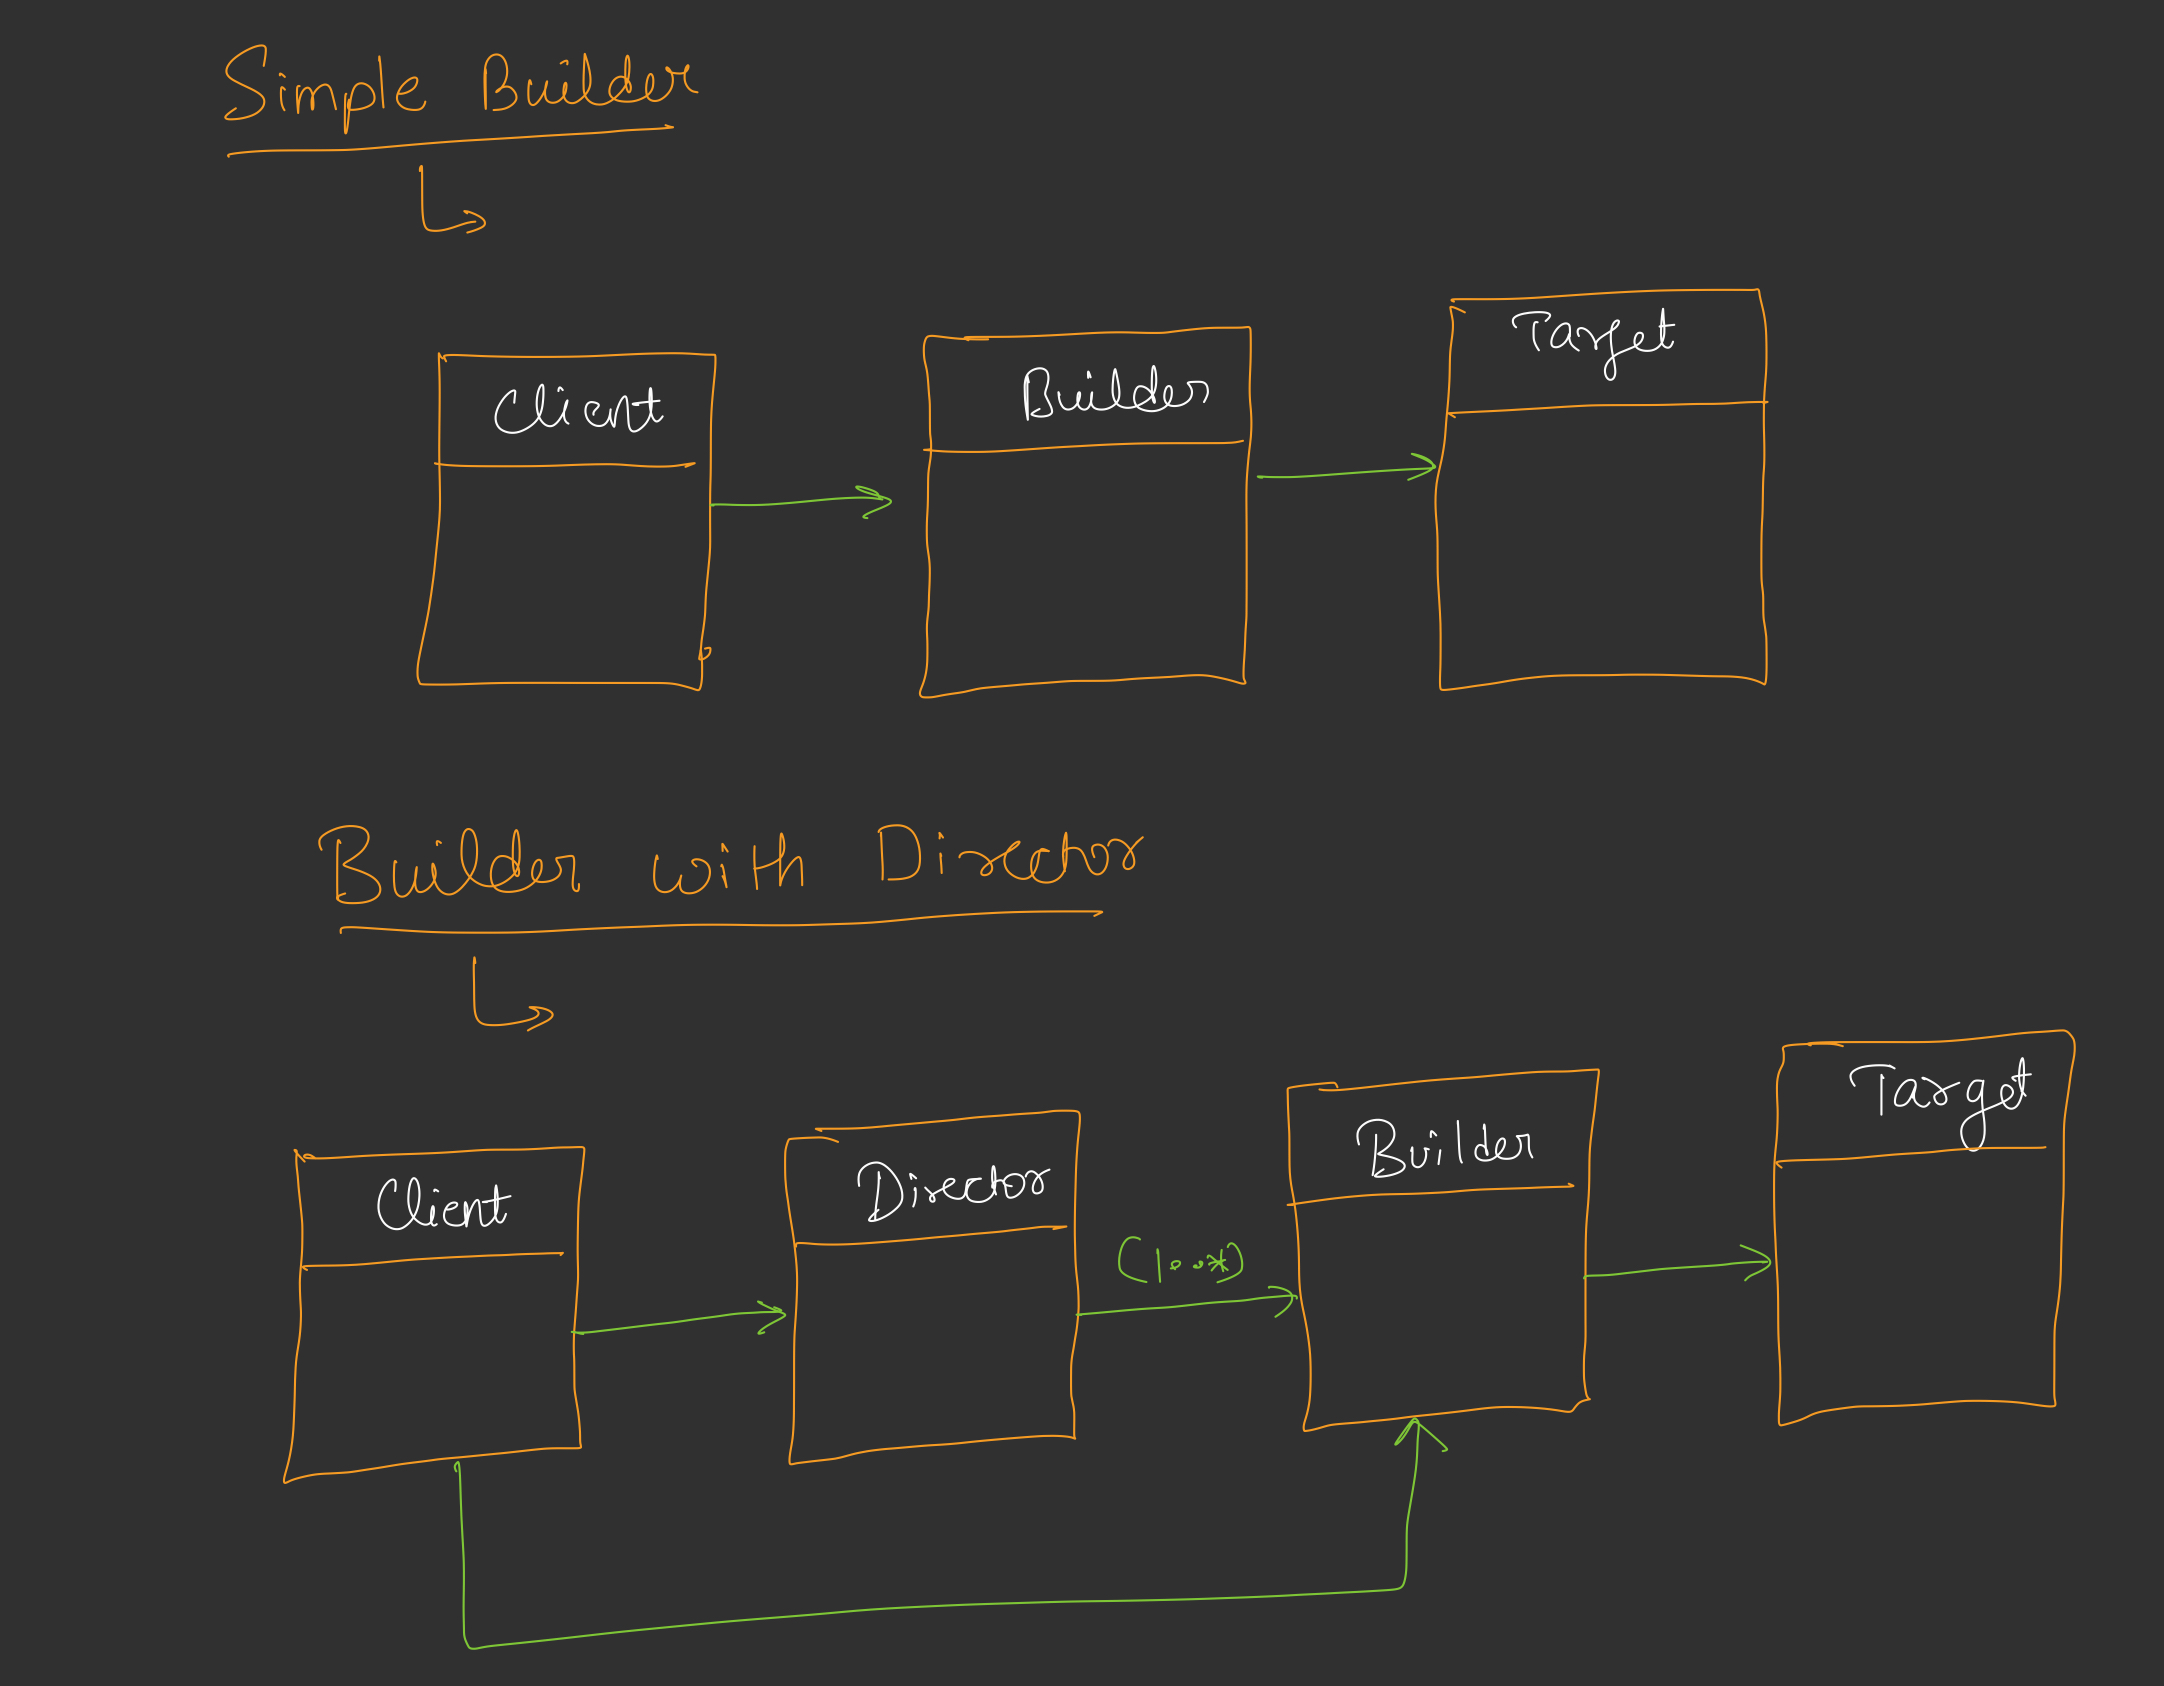 Simple Builder
Client
Builder
Target
Builder with Director
Client
Director
Builder
Target
(1..*)